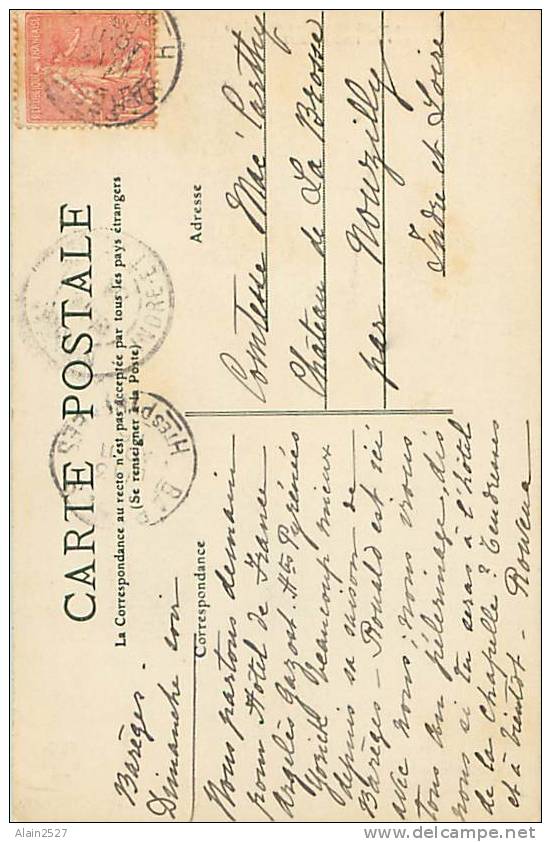 CARTE POSTALE
La Correspondance au recto n'est pas acceptée par tous les pays étrangers
(Se renseigner à la Poste)
Correspondance
Adresse
Barèges -
Dimanche soir
Nous partons demain
pour Hotel de France
Argelès Gazost. Htes Pyrénées
Yorick beaucoup mieux
depuis sa saison de
Barèges - Ronald est ici
avec nous, nous irons
tous au pélerinage, dis
nous si tu seras à l'hôtel
de la Chapelle? Tendresses
et à bientôt - Rowena
Comtesse Mac' Carthy
Château de La Brosse
par Nouzilly
Indre et Loire
REPUBLIQUE FRANÇAISE
INDRE-ET
Htes P
Alain2527
www.delcampe.net